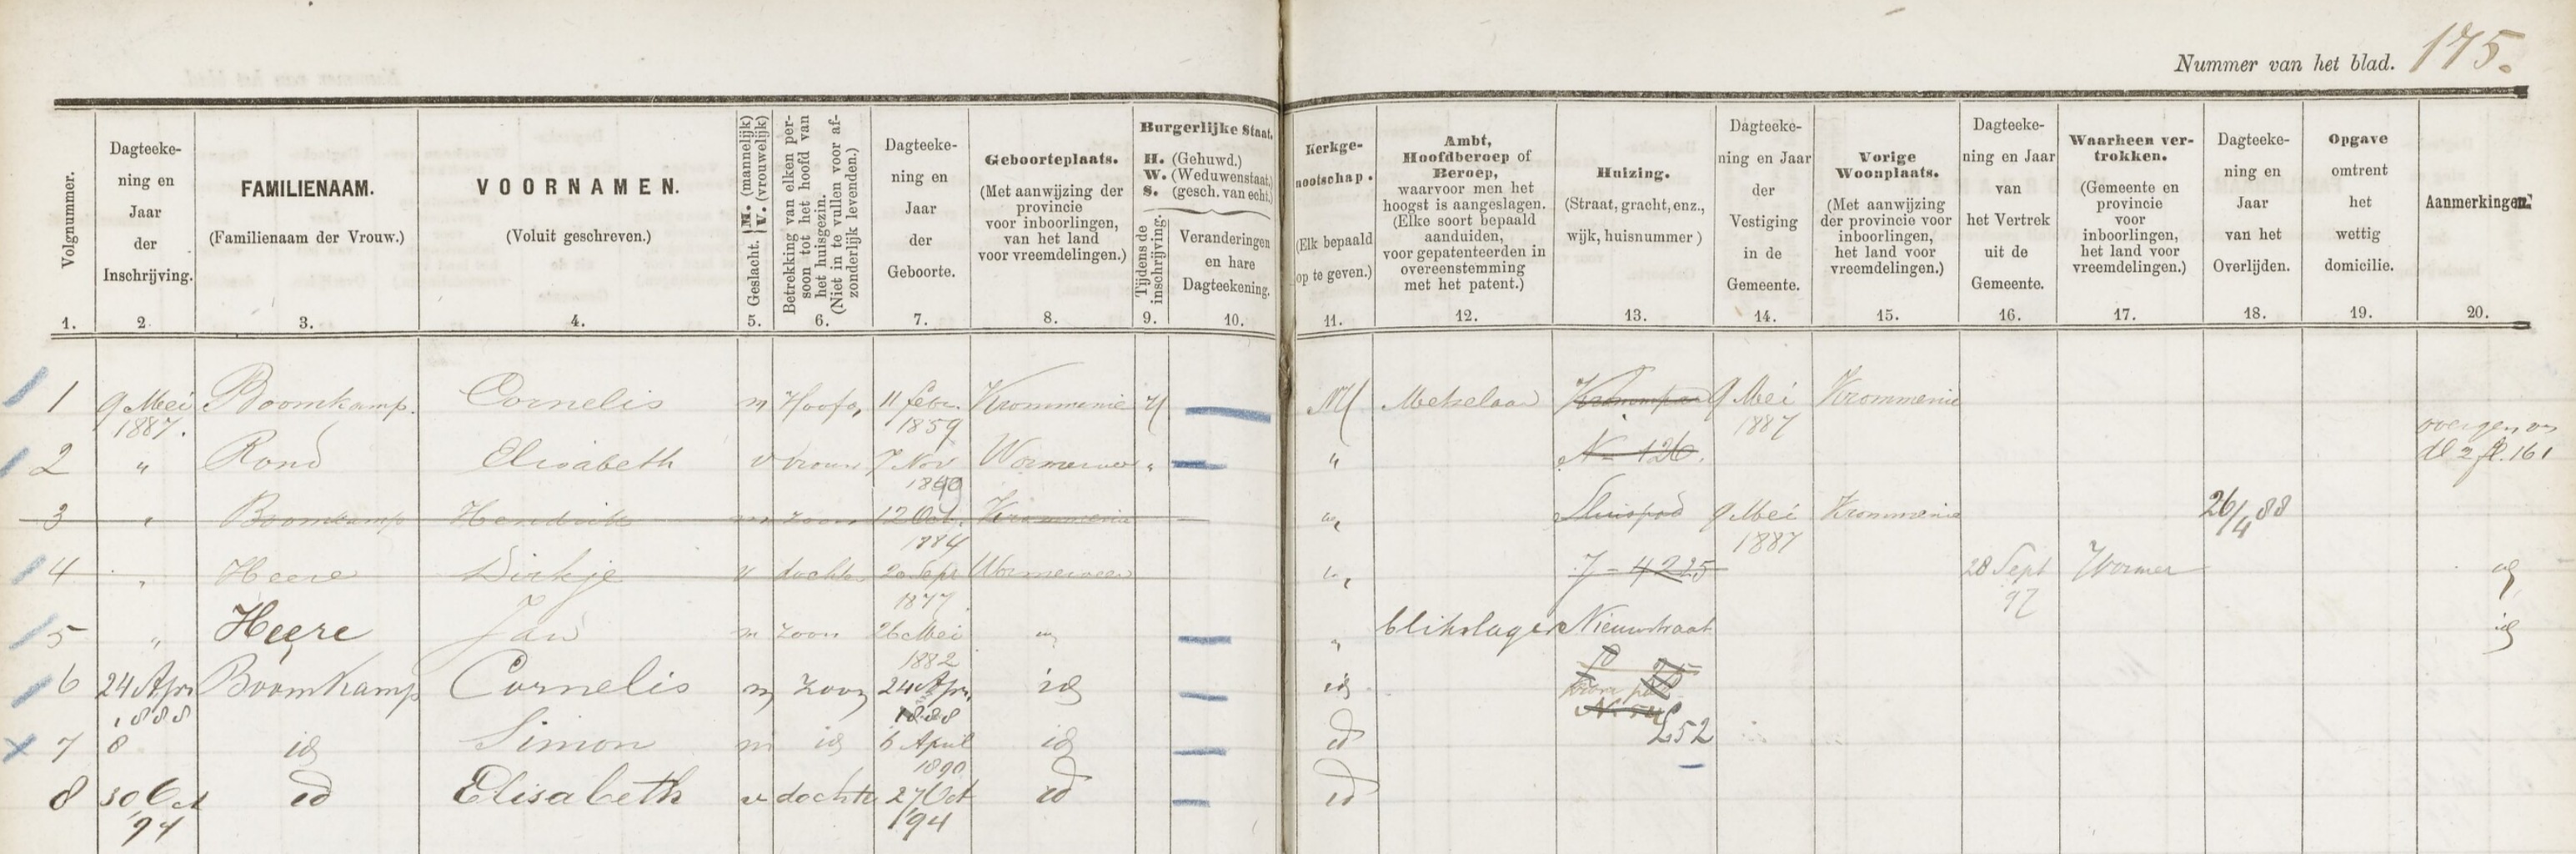 Nummer van het blad. 175.
Volgnummer.
1.
Dagteeke-
ning en
Jaar
der
Inschrijving.
2
FAMILIENAAM.
(Familienaam der Vrouw.)
3.
VOORNAMEN.
(Voluit geschreven.)
4.
Geslacht. {M. (mannelijk) V. (vrouwelijk)
5.
Betrekking van elken per-
soon tot het hoofd van
het huisgezin.
(Niet in te vullen voor af-
zonderlijk levenden.)
6.
Dagteeke-
ning en
Jaar
der
Geboorte.
7.
Geboorteplaats.
(Met aanwijzing der
provincie
voor inboorlingen,
van het land
voor vreemdelingen.)
8.
Burgerlijke Staat.
H. (Gehuwd.)
W. (Weduwenstaat.)
S. (gesch. van echt.)
Tijdens de
inschrijving.
9.
Veranderingen
en hare
Dagteekening.
10.
Kerkge-
nootschap.
(Elk bepaald
op te geven.)
11.
Ambt,
Hoofdberoep of
Beroep,
waarvoor men het
hoogst is aangeslagen.
(Elke soort bepaald
aanduiden,
voor gepatenteerden in
overeenstemming
met het patent.)
12.
Huizing.
(Straat, gracht, enz.,
wijk, huisnummer)
13.
Dagteeke-
ning en Jaar
der
Vestiging
in de
Gemeente.
14.
Vorige
Woonplaats.
(Met aanwijzing
der provincie voor
inboorlingen,
het land voor
vreemdelingen.)
15.
Dagteeke-
ning en Jaar
van
het Vertrek
uit de
Gemeente.
16.
Waarheen ver-
trokken.
(Gemeente en
provincie
voor
inboorlingen,
het land voor
vreemdelingen.)
17.
Dagteeke-
ning en
Jaar
van het
Overlijden.
18.
Opgave
omtrent
het
wettig
domicilie.
19.
Aanmerkingen.
20.
1 9 Mei Boomkamp. Cornelis m Hoofd 11 febr. Krommenie H NH Metselaar 9 Mei Krommenie
1887. 1859 1887
2 " Rond Elisabeth v vrouw 7 Nov Wormerveer " " N 126. overgen on
dl 2 fl. 161
3 " Boomkamp Hendrik m zoon 12 Oct. Krommenie " Sluispad 9 Mei Krommenie 26/4 88
1884 1887
4 " Heere Dirkje v dochter 20 Sept Wormerveer " 28 Sept Wormer id
1877 97
5 " Heere Jan m zoon 26 Mei " " blikslager Nieuwstraat id
1882
6 24 Apr Boomkamp Cornelis m zoon 24 Apr. id id
1888 1888
7 8 id Simon m id 6 April id id L52
1890
8 30 Oct id Elisabeth v dochter 27 Oct id id
94 94